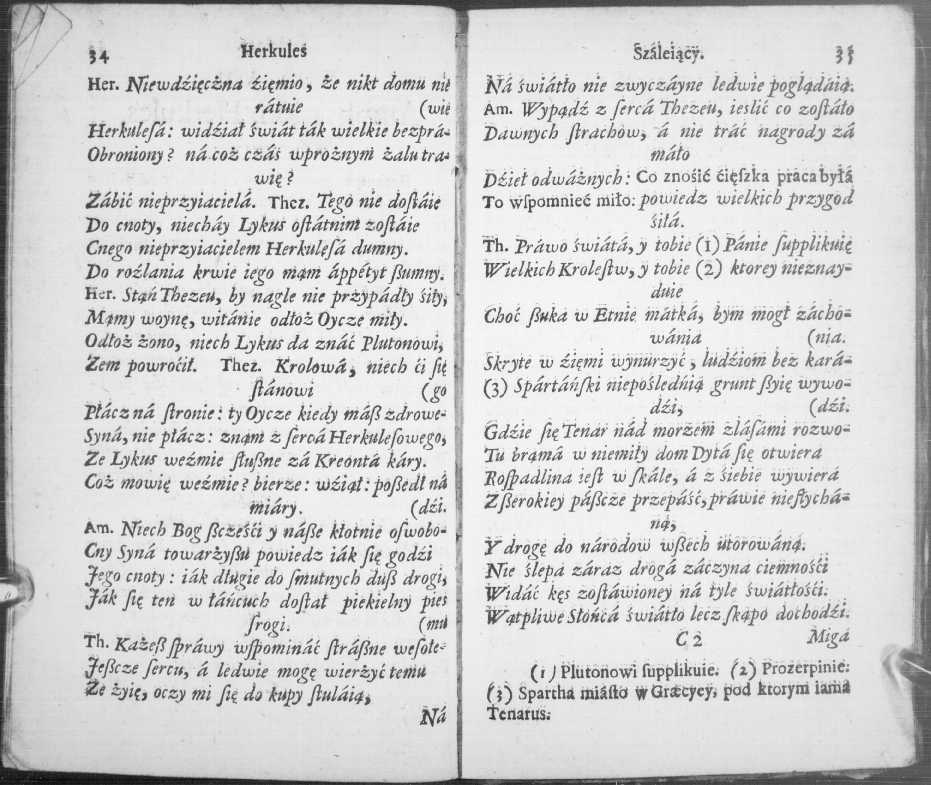 34 Herkules
Her. Niewdźięcżna źięmio, że nikt domu nie
rátuie (wie
Herkulesá: widźiał świát ták wielkie bezprá-
Obroniony? ná coż czás wprożnym żalu tra-
wię?
Zábić nieprzyiacielá. Thez. Tego nie dostáie
Do cnoty, niecháy Lykus ostátnim zostáie
Cnego nieprzyiacielem Herkulęsá dumny.
Do rozlania krwie iego mąm áppétyt szumny.
Her. Stąń Thezeu, by nagle nie przypádły śiły,
Mąmy woynę, witánie odłoż Oycze miły.
Odłoż żono, niech Lykus da znáć Plutonowi,
Żem powroćił. Thez. Krolowá, niech ći się
stánowi (go
Płácz ná stronie: ty Oycze kiedy mász zdrowe-
Syná, nie płácz: znąm z sercá Herkulesowego,
Ze Lykus weźmie słuszne zá Kreontá káry.
Coż mowię weźmie? bierze: wźiął: poszedł ná
miáry. (dźi.
Am. Niech Bog szcześći y násze kłotnie oswobo-
Cny Syná towarżyszu powiedz iák się godźi
Jego cnoty: iák długie do smutnych dusz drogi,
Ják się ten w łáńcuch dostał piekielny pies
srogi. (mu
Th. Każesz spráwy wspomináć strászne wesołe-
Jeszcze sercu, á ledwie mogę wierżyć temu
Że żyię, oczy mi się do kupy stuláią,
Ná
Száleiący. 35
Ná świátło nie zwyczáyne ledwie poglądáią.
Am. Wypądź z sercá Thezeu, ieslić co zostáło
Dawnych strachow, á nie tráć nagrody zá
máło
Dźieł odważnych: Co znośić ćięszka praca byłá
To wspomnieć miło: powiedz wielkich przygod
śiłá.
Th. Práwo świátá, y tobie (1) Pánie supplikuię
Wielkich Krolestw, y tobie (2) ktorey nieznay-
duie
Choć szuka w Etnie mátká, bym mogł zácho-
wánia (nia.
Skryte w źięmi wynurzyć, ludźiom bez kará-
(3) Spártáński niepośledńią grunt szyię wywo-
dźi, (dźi.
Gdźie się Tenar nád morzem zlásámi rozwo-
Tu bramá w niemiły dom Dytá się otwiera
Rospadlina iest w skále, á z śiebie wywierá
Z szerokiey pászcze przepáść, práwie niesłychá-
ną,
Y drogę do národow wszech utorowáną.
Nie ślepa záraz drogá záczyna ćiemnośći
Widáć kęs zostáwioney ná tyle świátłośći.
Wątpliwe Słońcá świátło lecz skąpo dochodźi.
C 2 Migá
(1) Plutonowi supplikuie. (2) Prozerpinie.
(3) Spartha miásto w Græcyey, pod ktorym iama
Tenarus.